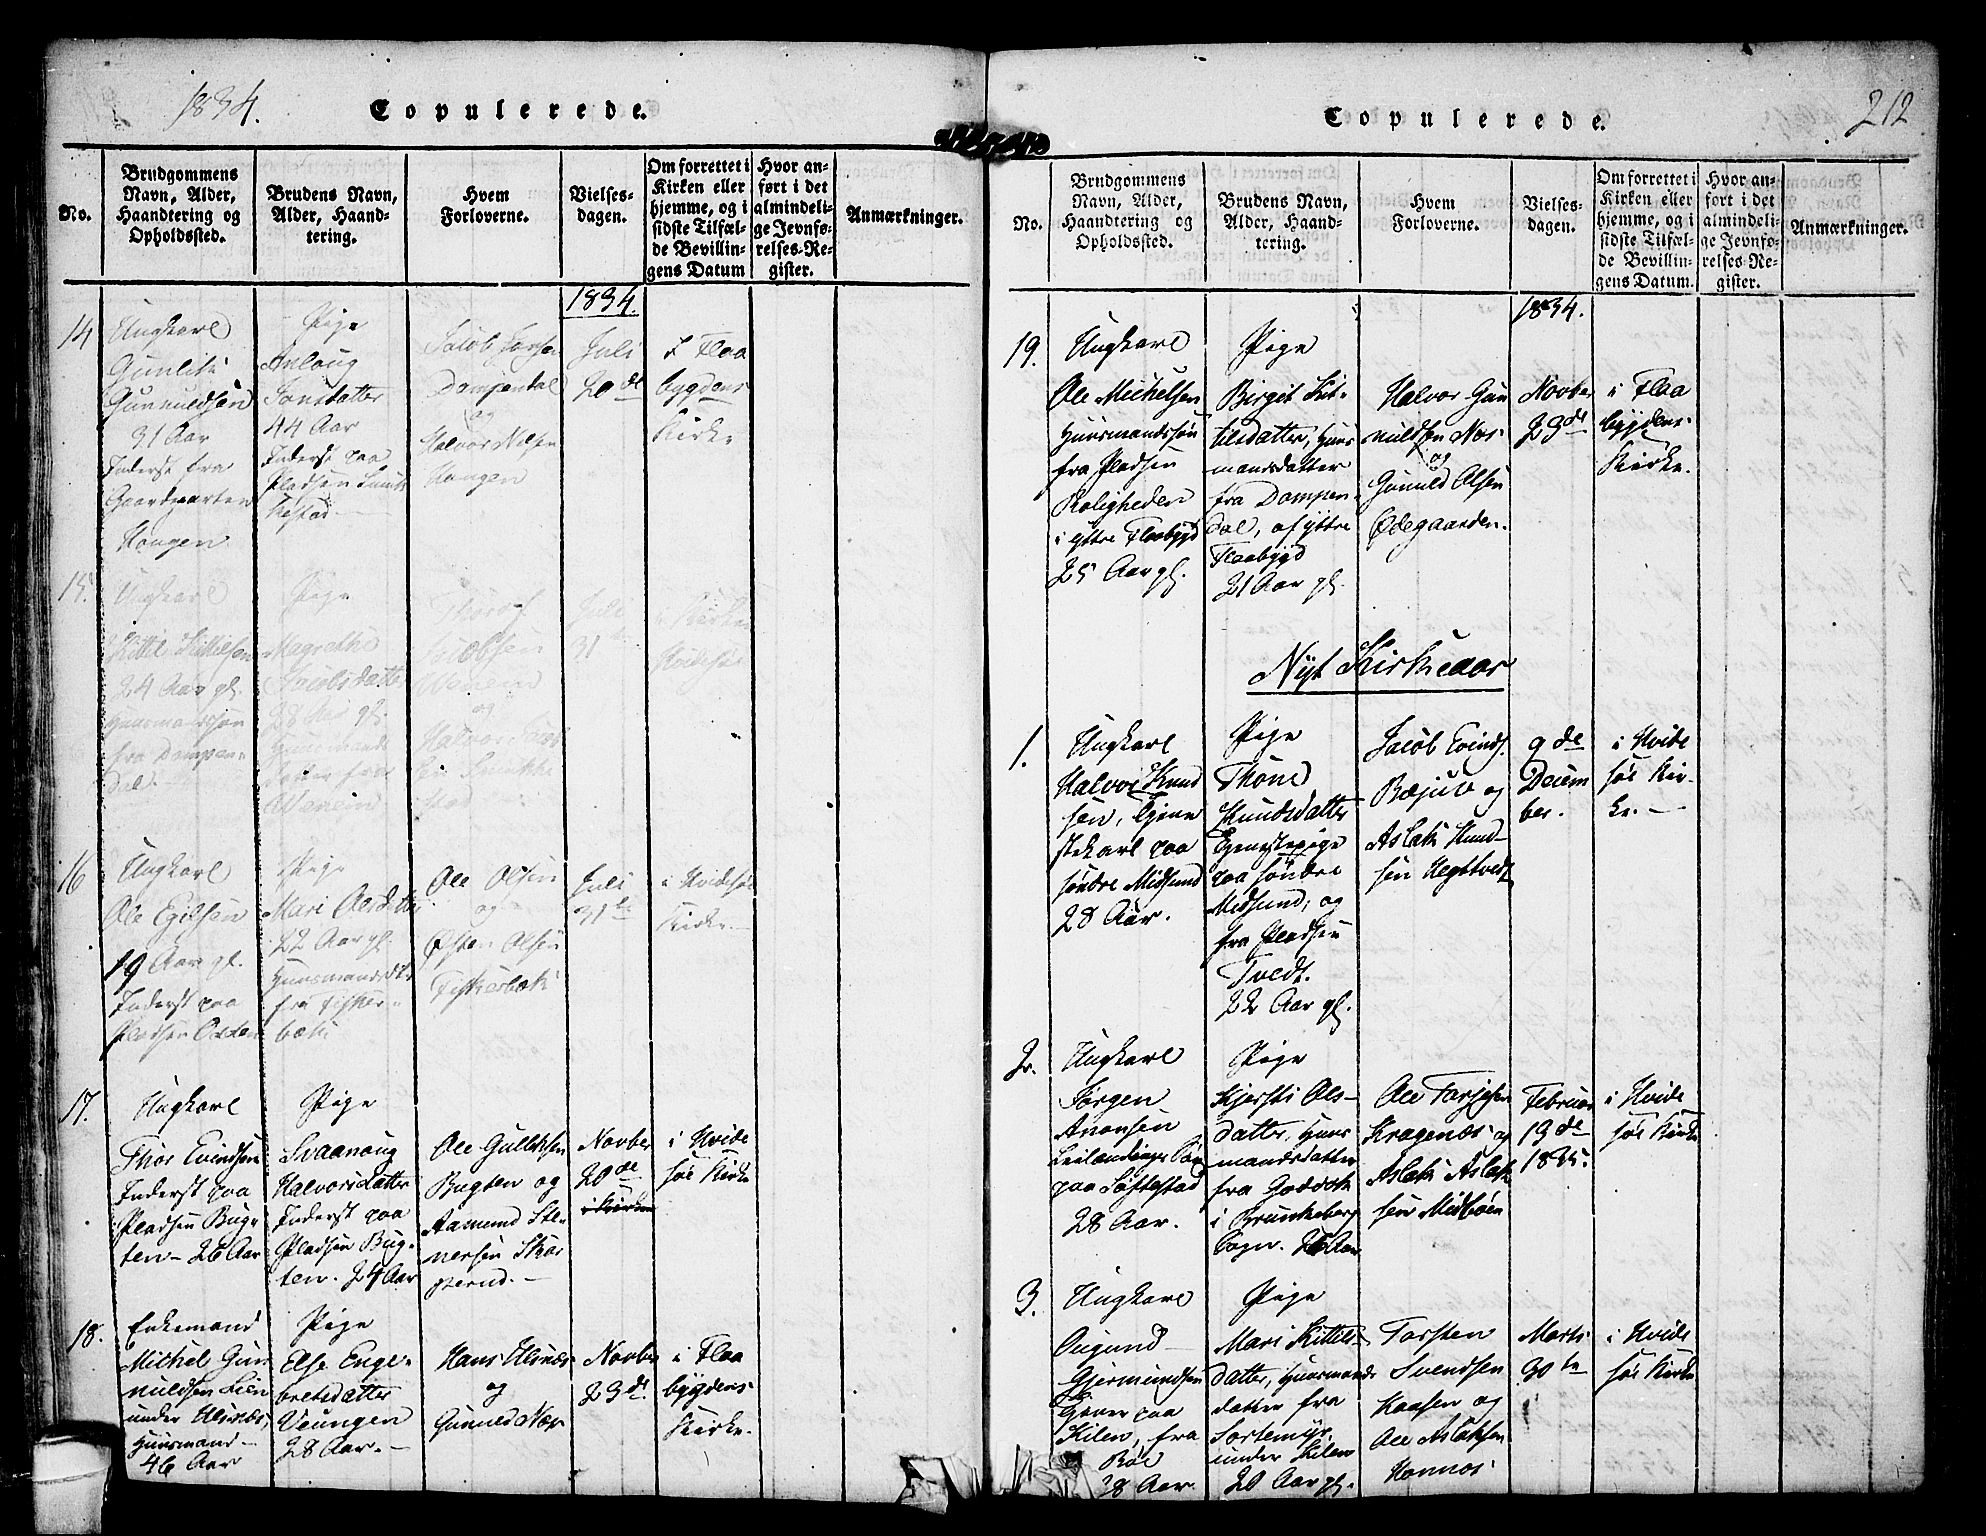 1834.
Copulerede.
No.
Brudgommens
Navn, Alder,
Haandtering og
Opholdssted.
Brudens Navn,
Alder, Haand-
tering.
Hvem
Forloverne.
Vielses-
dagen.
Om forrettet i
Kirken eller
hjemme, og i
sidste Tilfæl-
de Bevillin-
gens Datum
Hvor an-
ført i det
almindeli-
ge Jevnfø-
relses-Re-
gister.
Anmærkninger.
1834.
14
Ungkarl
Gunleik
Gunnuldsen
31 Aar
Inderst fra
Haugen
Pige
Aslaug
Jonsdatter
44 Aar
Inderst paa
Pladsen
Jacob
Dampendal
og
Halvor Nilsen
Haugen
Juli
20de
I Flaa
bygdens
Kirke
15.
Ungkarl
Kittil Kittilsen
24 Aar gl.
Huusmandssøn
fra Dampen-
dal
Pige
Magrethe
Jacobsdatter
28 Aar gl.
Huusmands
datter fra
Jacobsen
og
Halvor
Juli
31
i Kirke
Hvidesøe
16
Ungkarl
Ole Egilsen
19 Aar gl.
Inderst paa
Pladsen
Pige
Mari
22 Aar gl.
fra Fisker-
bæk
Ole Olsen
og
Østen Olsen
Fiskerbæk
Juli
31te
i Hvidesøe
Kirke.
17.
Ungkarl
Thor Evindsen
Inderst paa
Pladsen Bug-
ten - 26 Aar
Pige
Svaanoug
Halvorsdatter
Inderst paa
Pladsen Bug-
ten. 24 Aar
Ole Gulliksen
Bugten og
Aamund Ste-
nersen
Novber
20de
i Hvide
søe Kirke
18.
Enkemand
Michel Gun
nuldsen Lien
under Ulsnæs,
Huusmand -
46 Aar
Pige
Else Enge-
bretsdatter
Veungen
28 Aar. -
Hans Ulsnæs
og
Gunuld Næs
Novber
23de
i Flaa
bygdens
Kirke.
212
Copulerede.
No.
Brudgommens
Navn, Alder,
Haandtering og
Opholdssted.
Brudens Navn,
Alder, Haand-
tering.
Hvem
Forloverne.
Vielses-
dagen.
Om forrettet i
Kirken eller
hjemme, og i
sidste Tilfæl-
de Bevillin-
gens Datum.
Hvor an-
ført i det
almindeli-
ge Jevnfø-
relses-Re-
gister.
Anmærkninger.
1834.
19.
Ungkarl
Ole Michelsen
Huusmandssøn
fra Pladsen
Roligheden
i yttre Flaabygd
25 Aar gl.
Pige
Birgit Kit-
tilsdatter, Huus
mandsdatter
fra Dampen-
dal, af yttre
Flaabygd
21 Aar gl.
Halvor Gun
nuldsen Næs
og
Gunuld Olsen
Ødegaarden.
Novber
23de
i Flaa
bygdens
Kirke.
Nyt Kirkeaar
1.
Ungkarl
Halvor Knud
sen, tjene
stekarl paa
søndre Midsund
28 Aar.
Pige
Thone
Knudsdatter
Tjenestepige
paa søndre
Midsund, og
fra Pladsen
Tvedt.
22 Aar gl.
Jacob Evinds.
Bæjuve og
Aslak Knud-
sen Hegtvedt
9de
Decem
ber.
i Hvide
søe Kir-
ke. -
2.
Ungkarl
Jørgen
Aanonsen
Leilændings Søn
paa Løftestad
28 Aar.
Pige
Kjersti Ols-
datter, Huus
mandsdatter
fra
i Brunkeberg
Sogn. 26 Aar
Ole Tarjesen
Kragenæs og
Aslak Aslak
sen Midbøen
Februar
13de
1835.
i Hvide
søe Kirke
3.
Ungkarl
Ougund
Gjermundsen
Tjener paa
Kilen, fra
Bøe
38 Aar
Pige
Mari Kittils-
datter, Huusmands
datter fra
Sortemyr
under Kilen
20 Aar gl.
Torsten
Svendsen
Haasen og
Ole Aslaksen
Hannos
Marts
30te
i Hvide
søe Kirke